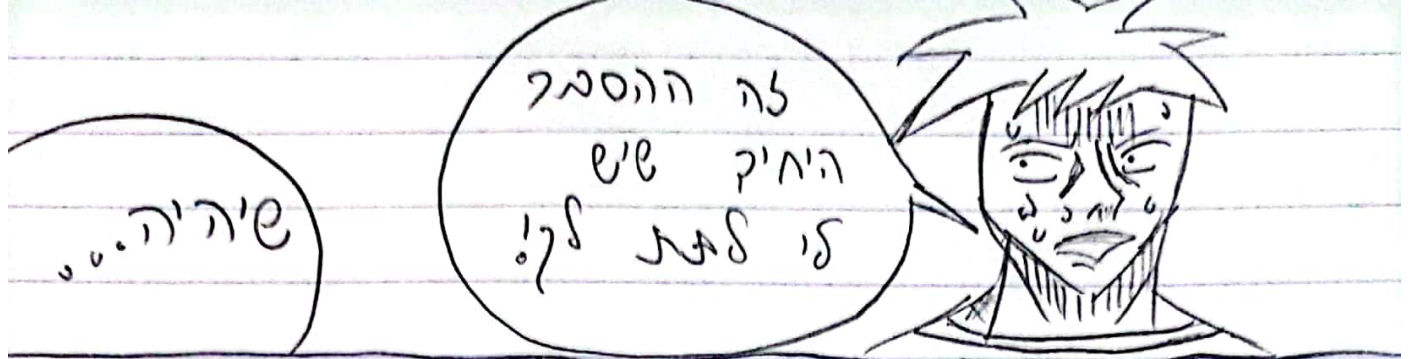 זה ההסבר
היחיד שיש
לי לתת לך!
שיהיה...